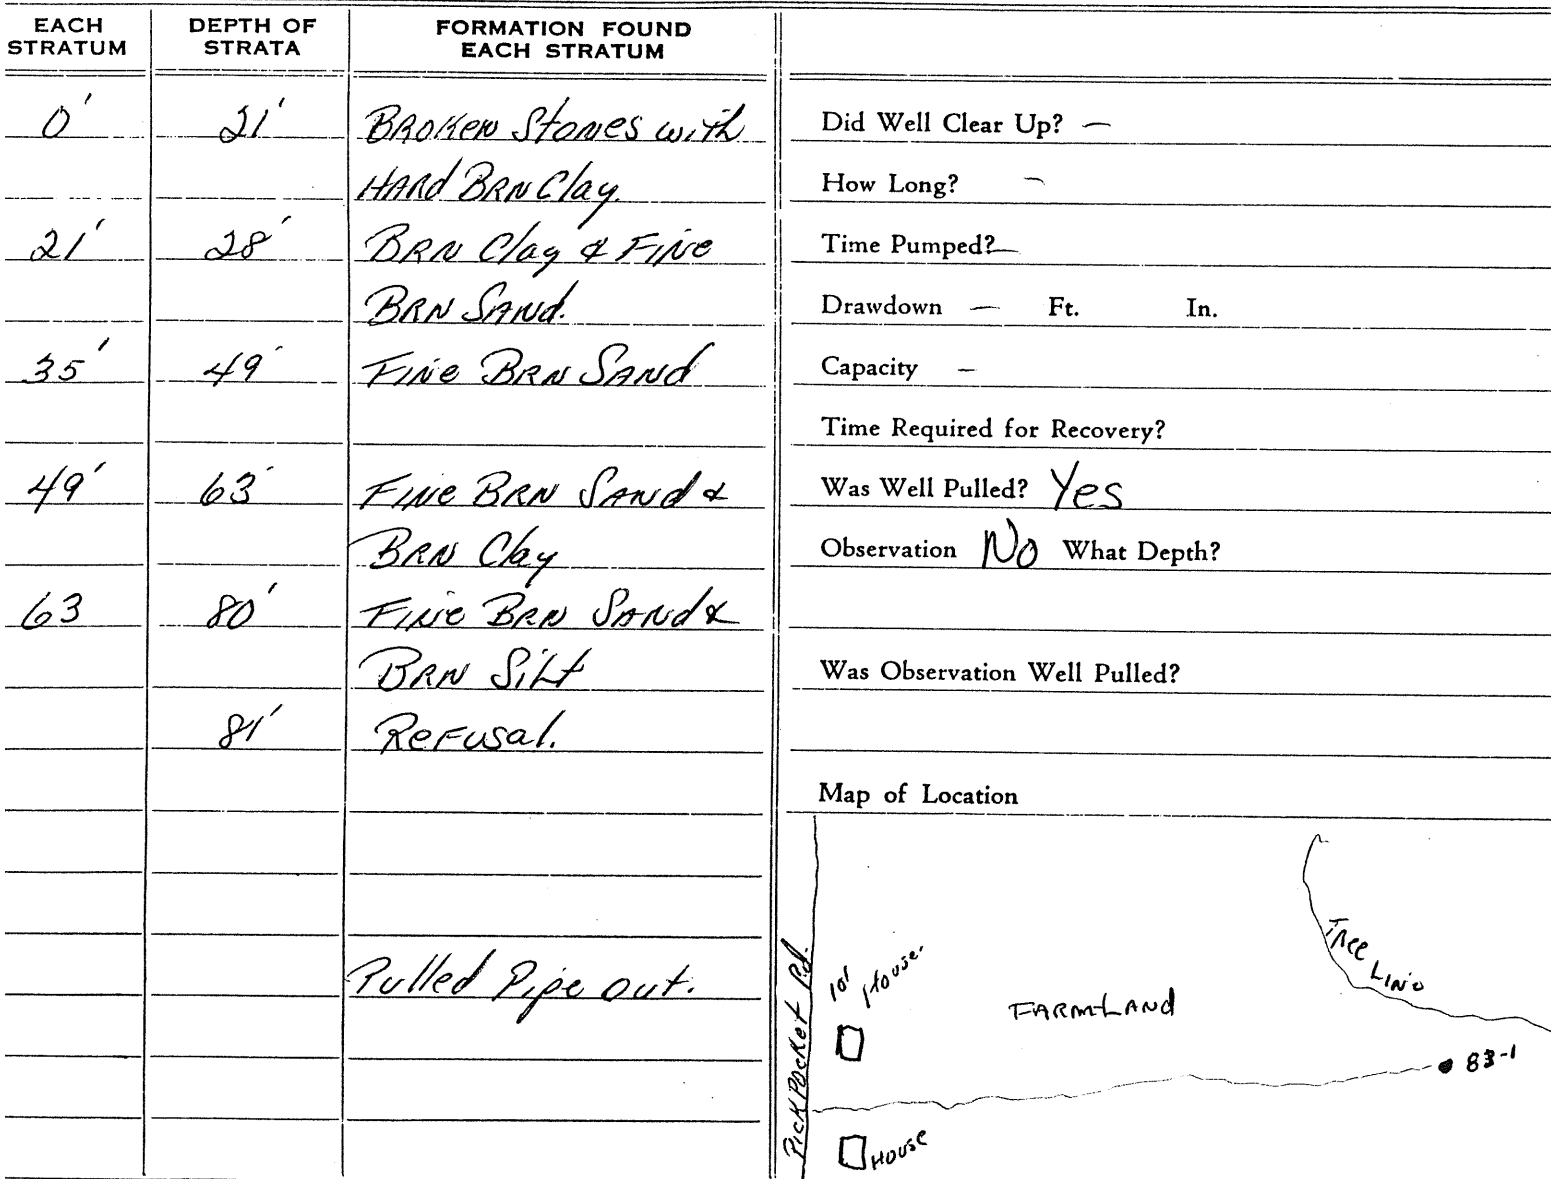 EACH STRATUM DEPTH OF STRATA FORMATION FOUND EACH STRATUM
0' 21' BROKEN Stones with
HARD BRN Clay.
21' 28' BRN Clay & FINE
BRN SAND.
35' 49' FINE BRN SAND
49' 63' FINE BRN SAND &
BRN Clay
63 80' FINE BRN SAND &
BRN SILT
81' Refusal.
Pulled Pipe out.
Did Well Clear Up? —
How Long? —
Time Pumped? —
Drawdown — Ft. In.
Capacity —
Time Required for Recovery?
Was Well Pulled? Yes
Observation No What Depth?
Was Observation Well Pulled?
Map of Location
PickPocket Rd.
101 House.
FARM-LAND
Tree Line
83-1
House